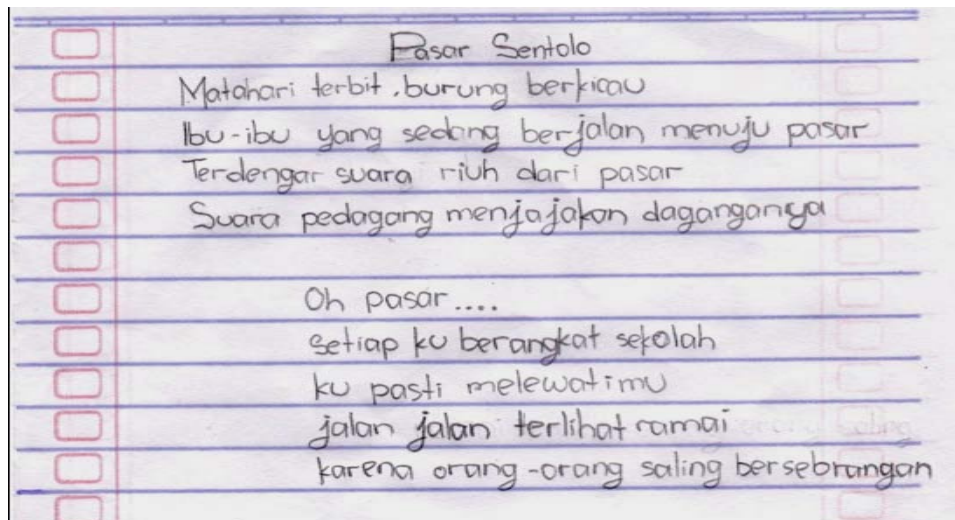 Pasar Sentolo
Matahari terbit, burung berkicau
Ibu-ibu yang sedang berjalan menuju pasar
Terdengar suara riuh dari pasar
Suara pedagang menjajakan daganganya
Oh pasar....
setiap ku berangkat sekolah
ku pasti melewatimu
jalan jalan terlihat ramai
karena orang-orang saling bersebrangan